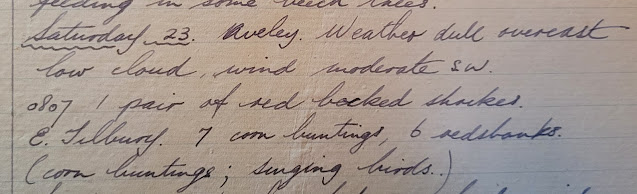 feeding in some beech trees.
Saturday 23. Aveley. Weather dull overcast
low cloud, wind moderate SW.
0807 1 pair of red backed shrikes.
E. Tilbury. 7 corn buntings, 6 redshanks.
(corn buntings; singing birds.)